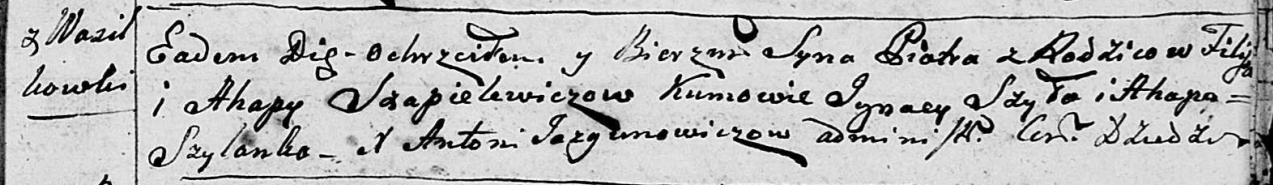 z Wasil
kowki
Eadem Die - ochrzciłem y Bierzm: Syna Piotra z Rodzicow Filip
i Ahapy Szapielewiczow Kumowie Jgnacy Szyło i Ahapa =
Szylanka - X Antoni Jazgunowiczow administr. Cer.